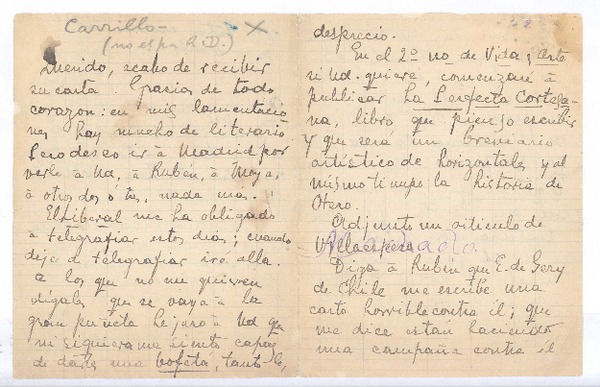 Carrillo-
(no es para R.D.)
Querido, acabo de recibir
su carta. Gracias de todo
corazon: en mis lamentacio
nes hay mucho de literario
Pero deseo ir à Madrid por
verle à Ud, à Rubén, à Moya,
à otros dos ó tres, nada mas.
El Liberal me ha obligado
à telegrafiar estos dias; cuando
deje de telegrafiar iré alla.
a los que no me quieren
digales que se vayan à la
gran puñeta Le juro à Ud que
ni siquiera me siento capaz
de darles una bofetá, tanto les
desprecio.
En el 2º no de Vida y Arte
si Ud. quiere, comenzaré à
publicar La Perfecta Cortesa-
na, libro que pienso escribir
y que será un breviario
artístico de horizontales y al
mismo tiempo la historia de
Otero.
Adjunto un articulo de
Villaespesa
Diga à Rubén que E. de
de Chile me escribe una
carta horrible contra él; que
me dice estan haciendo
una campaña contra él